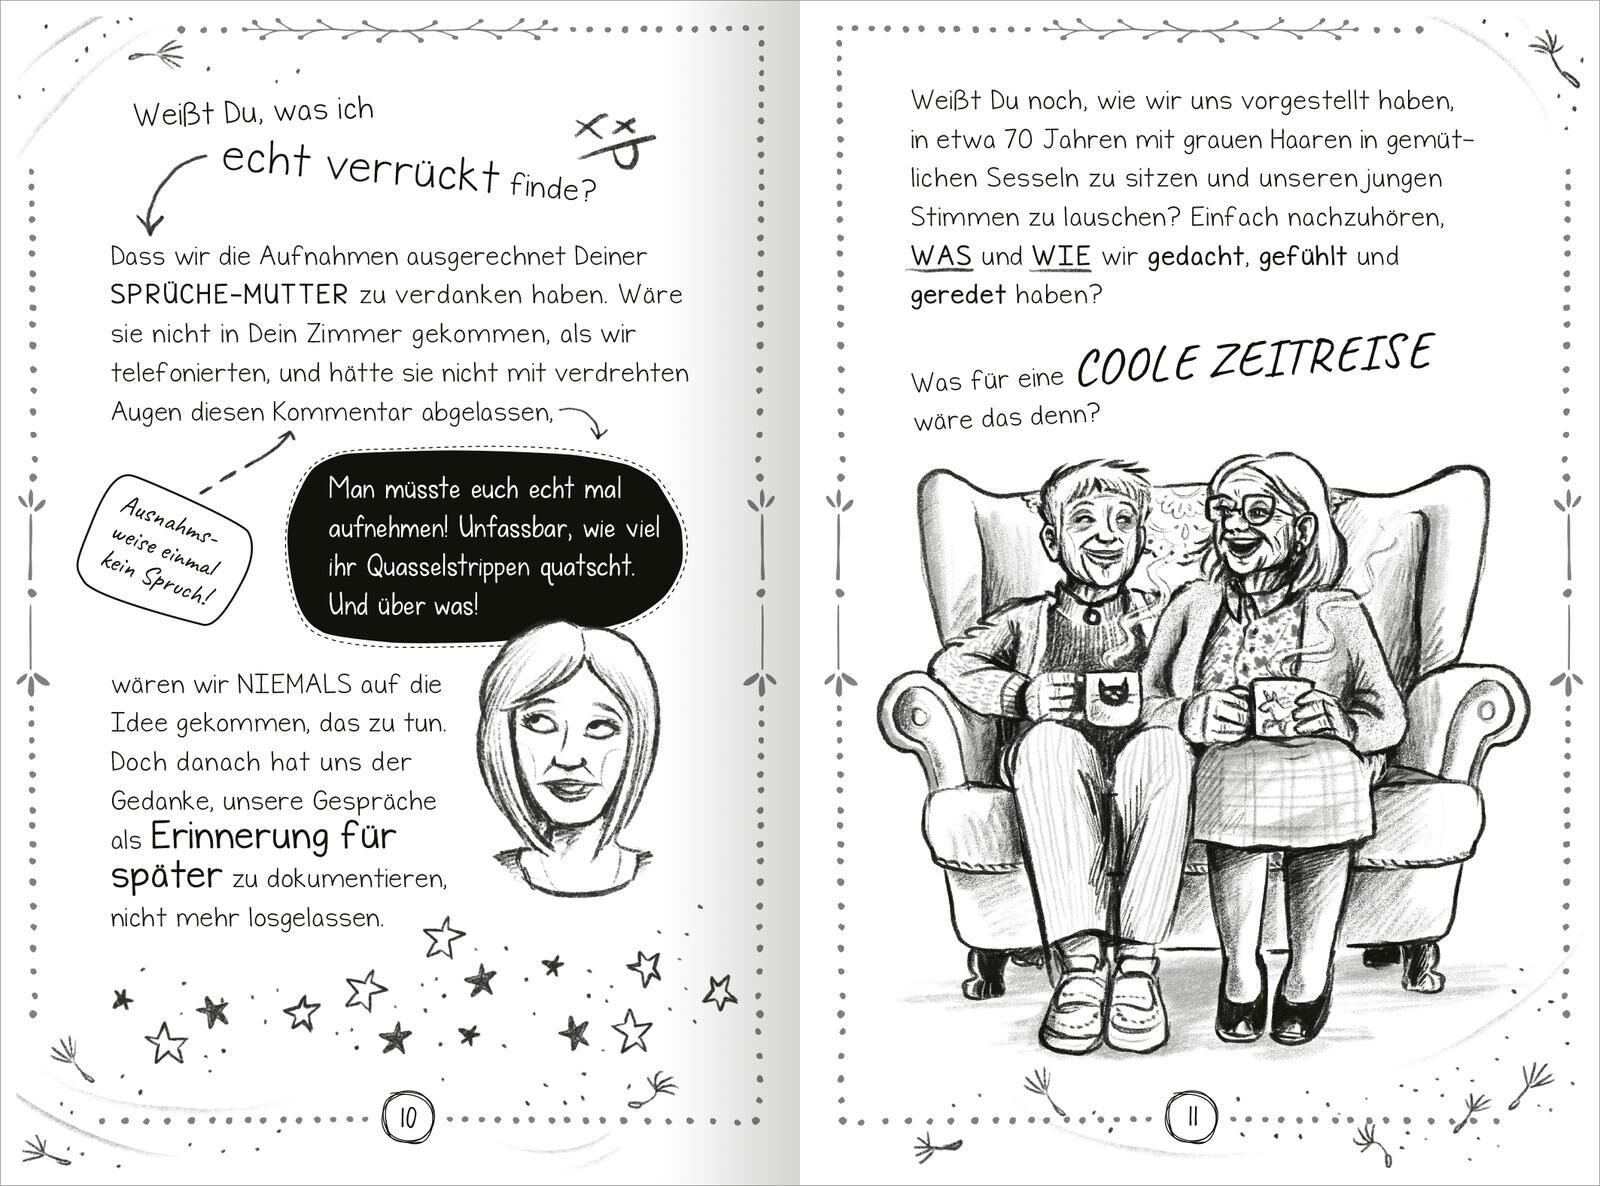 Weißt Du, was ich
echt verrückt finde?
Dass wir die Aufnahmen ausgerechnet Deiner
SPRÜCHE-MUTTER zu verdanken haben. Wäre
sie nicht in Dein Zimmer gekommen, als wir
telefonierten, und hätte sie nicht mit verdrehten
Augen diesen Kommentar abgelassen,
Ausnahms-
weise einmal
kein Spruch!
Man müsste euch echt mal
aufnehmen! Unfassbar, wie viel
ihr Quasselstrippen quatscht.
Und über was!
wären wir NIEMALS auf die
Idee gekommen, das zu tun.
Doch danach hat uns der
Gedanke, unsere Gespräche
als Erinnerung für
später zu dokumentieren,
nicht mehr losgelassen.
10
Weißt Du noch, wie wir uns vorgestellt haben,
in etwa 70 Jahren mit grauen Haaren in gemüt-
lichen Sesseln zu sitzen und unseren jungen
Stimmen zu lauschen? Einfach nachzuhören,
WAS und WIE wir gedacht, gefühlt und
geredet haben?
Was für eine COOLE ZEITREISE
wäre das denn?
11